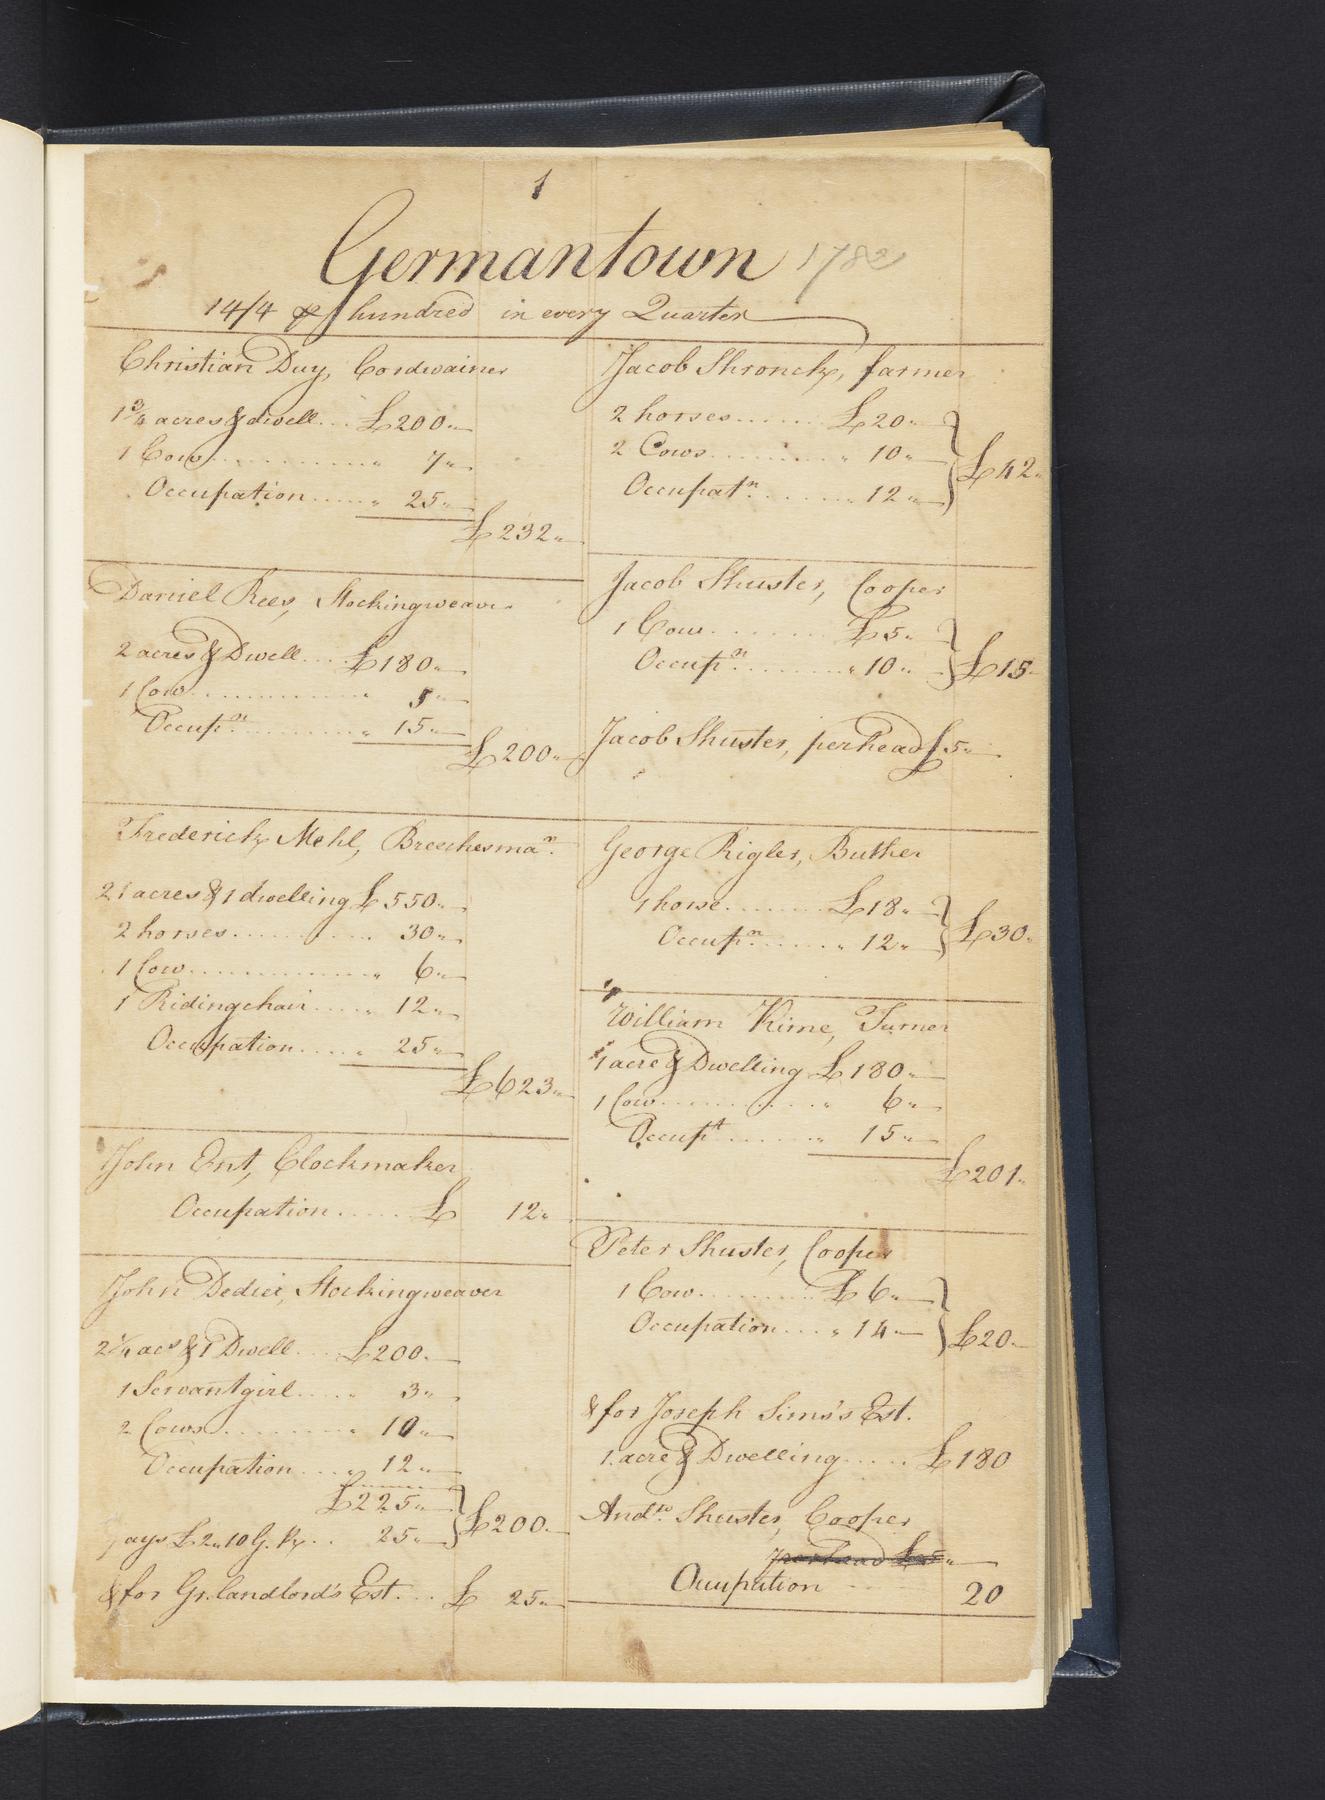 1
Germantown 1782
14/4 ℔ hundred in every Quarter
Christian Duy, Cordwainer
1 3/4 acres & dwell... £200"
1 Cow............ " 7"
Occupation...... " 25"
£232"
Daniel Rees, Stockingweaver
2 acres & Dwell.... £180"
1 Cow............ " 5"
Occupn......... " 15"
£200"
Frederick Mehl, Breechesman.
21 acres & 1 dwelling £550"
2 horses.......... 30"
1 Cow............ " 6"
1 Ridingchair..... " 12"
Occupation..... " 25"
£623"
John Ent, Clockmaker
Occupation..... £ 12"
John Dedier, Stockingweaver
2 1/4 acs & 1 Dwell.... £200"
1 Servantgirl.... " 3"
2 Cows........ " 10"
Occupation.... " 12"
£225"
pays £2"10 G. R... 25" } £200"
& for Gr. landlord's Est... £ 25"
Jacob Shronck, farmer
2 horses...... £20"
2 Cows........ " 10"
Occupatn...... " 12" } £42"
Jacob Shuster, Cooper
1 Cow........ £5"
Occupn....... " 10" } £15"
Jacob Shuster, perhead £5"
George Rigler, Buther
1 horse....... £18"
Occupn...... " 12" } £30"
William Kime, Turner
1 acre & Dwelling £180"
1 Cow........... " 6"
Occupt...... " 15"
£201"
Peter Shuster, Cooper
1 Cow......... £6"
Occupation... " 14" } £20"
& for Joseph Sims's Est.
1 acre & Dwelling..... £180
Andw. Shuster, Cooper
perhead £5"
Occupation -- 20